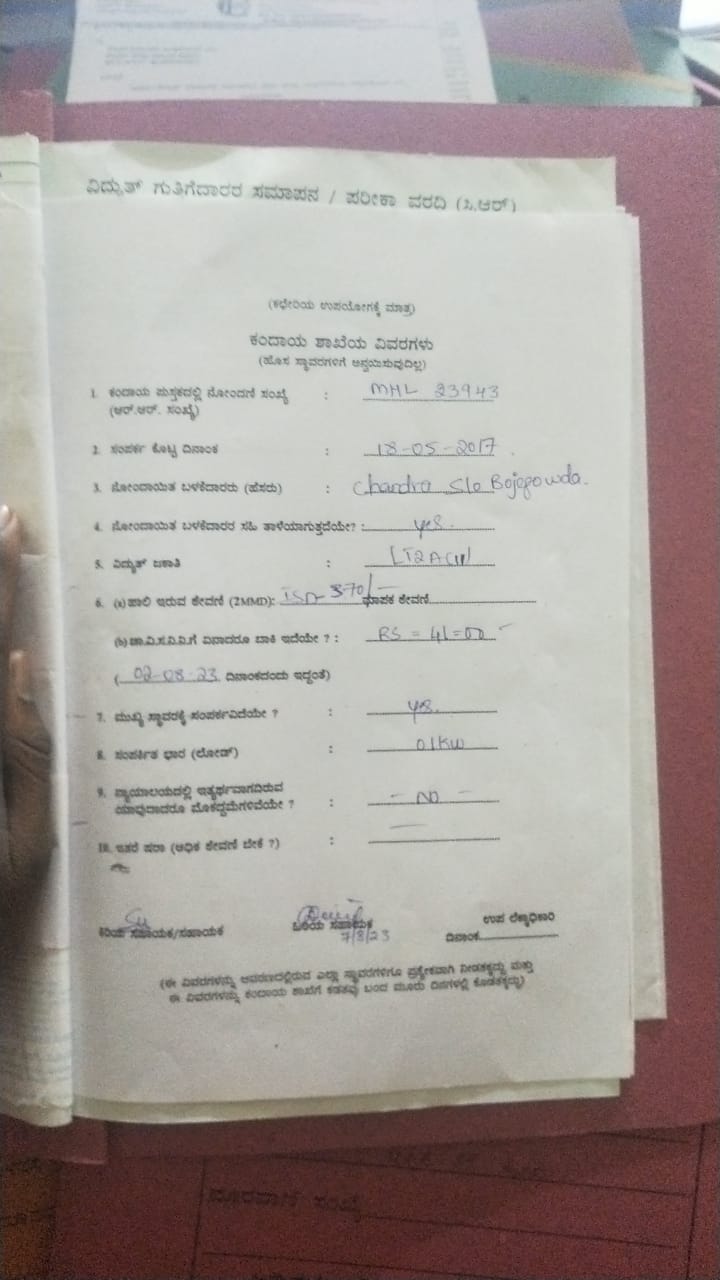 ವಿದ್ಯುತ್ ಗುತಿಗೆದಾರರ ಸಮಾಪನ / ಪರೀಕಾ ವರದಿ (ಸಿ.ಆರ್)
(ಕಛೇರಿಯ ಉಪಯೋಗಕ್ಕೆ ಮಾತ್ರ)
ಕಂದಾಯ ಶಾಖೆಯ ವಿವರಗಳು
(ಹೊಸ ಸ್ಥಾವರಗಳಿಗೆ ಅನ್ವಯಿಸುವುದಿಲ್ಲ)
1. ಕಂದಾಯ ಪುಸ್ತಕದಲ್ಲಿ ನೋಂದಣಿ ಸಂಖ್ಯೆ : MHL 23943
(ಆರ್.ಆರ್. ಸಂಖ್ಯೆ)
2. ಸಂಪರ್ಕ ಕೊಟ್ಟ ದಿನಾಂಕ : 18-05-2017
3. ನೋಂದಾಯಿತ ಬಳಕೆದಾರರು (ಹೆಸರು) : Chandra S/o Bojegowda.
4. ನೋಂದಾಯಿತ ಬಳಕೆದಾರರ ಸಹಿ ತಾಳೆಯಾಗುತ್ತದೆಯೇ? : yes.
5. ವಿದ್ಯುತ್ ಜಕಾತಿ : LT2A(ii)
6. (a) ಹಾಲಿ ಇರುವ ಠೇವಣಿ (2MMD): ISD- 370/- ಮಾಪಕ ಠೇವಣಿ
(b) ಚಾ.ವಿ.ಸ.ನಿ.ನಿ.ಗೆ ಏನಾದರೂ ಬಾಕಿ ಇದೆಯೇ ? : RS = 41=00
( 02-08-23 ದಿನಾಂಕದಂದು ಇದ್ದಂತೆ)
7. ಮುಖ್ಯ ಸ್ಥಾವರಕ್ಕೆ ಸಂಪರ್ಕವಿದೆಯೇ ? : yes.
8. ಸಂಪರ್ಕಿತ ಭಾರ (ಲೋಡ್) : 01KW
9. ನ್ಯಾಯಾಲಯದಲ್ಲಿ ಇತ್ಯರ್ಥವಾಗದಿರುವ
ಯಾವುದಾದರೂ ಮೊಕದ್ದಮೆಗಳಿವೆಯೇ ? : - NO -
10. ಇತರೆ ಷರಾ (ಅಧಿಕ ಠೇವಣಿ ಬೇಕೆ ?) : —
ಕಿರಿಯ ಸಹಾಯಕ/ಸಹಾಯಕ ಹಿರಿಯ ಸಹಾಯಕ ಉಪ ಲೆಕ್ಕಾಧಿಕಾರಿ
7/8/23 ದಿನಾಂಕ
(ಈ ವಿವರಗಳನ್ನು ಆವರಣದಲ್ಲಿರುವ ಎಲ್ಲಾ ಸ್ಥಾವರಗಳಿಗೂ ಪ್ರತ್ಯೇಕವಾಗಿ ನೀಡತಕ್ಕದ್ದು ಮತ್ತು
ಈ ವಿವರಗಳನ್ನು ಕಂದಾಯ ಶಾಖೆಗೆ ಕಡತವು ಬಂದ ಮೂರು ದಿನಗಳಲ್ಲಿ ಕೊಡತಕ್ಕದ್ದು)
ಸಂಖ್ಯೆ